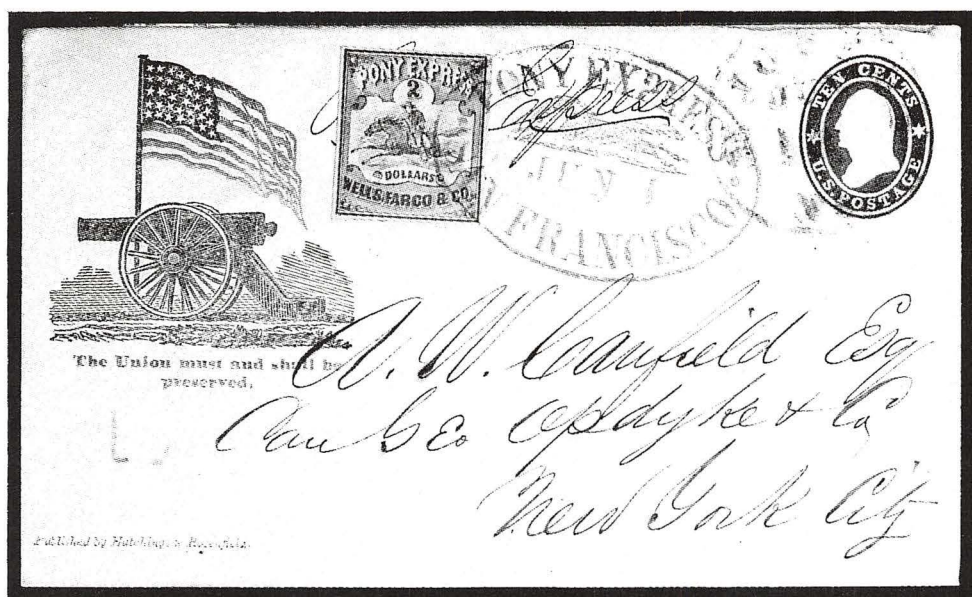 PONY EXPRESS
2
DOLLARS
WELLS, FARGO & CO.
PONY EXPRESS
JUN 1
FRANCISCO
Express
TEN CENTS
U.S. POSTAGE
The Union must and shall be
preserved.
A. W. Canfield Esq
Care Geo Opdyke & Co
New York City
Published by Hutchings & Rosenfield.